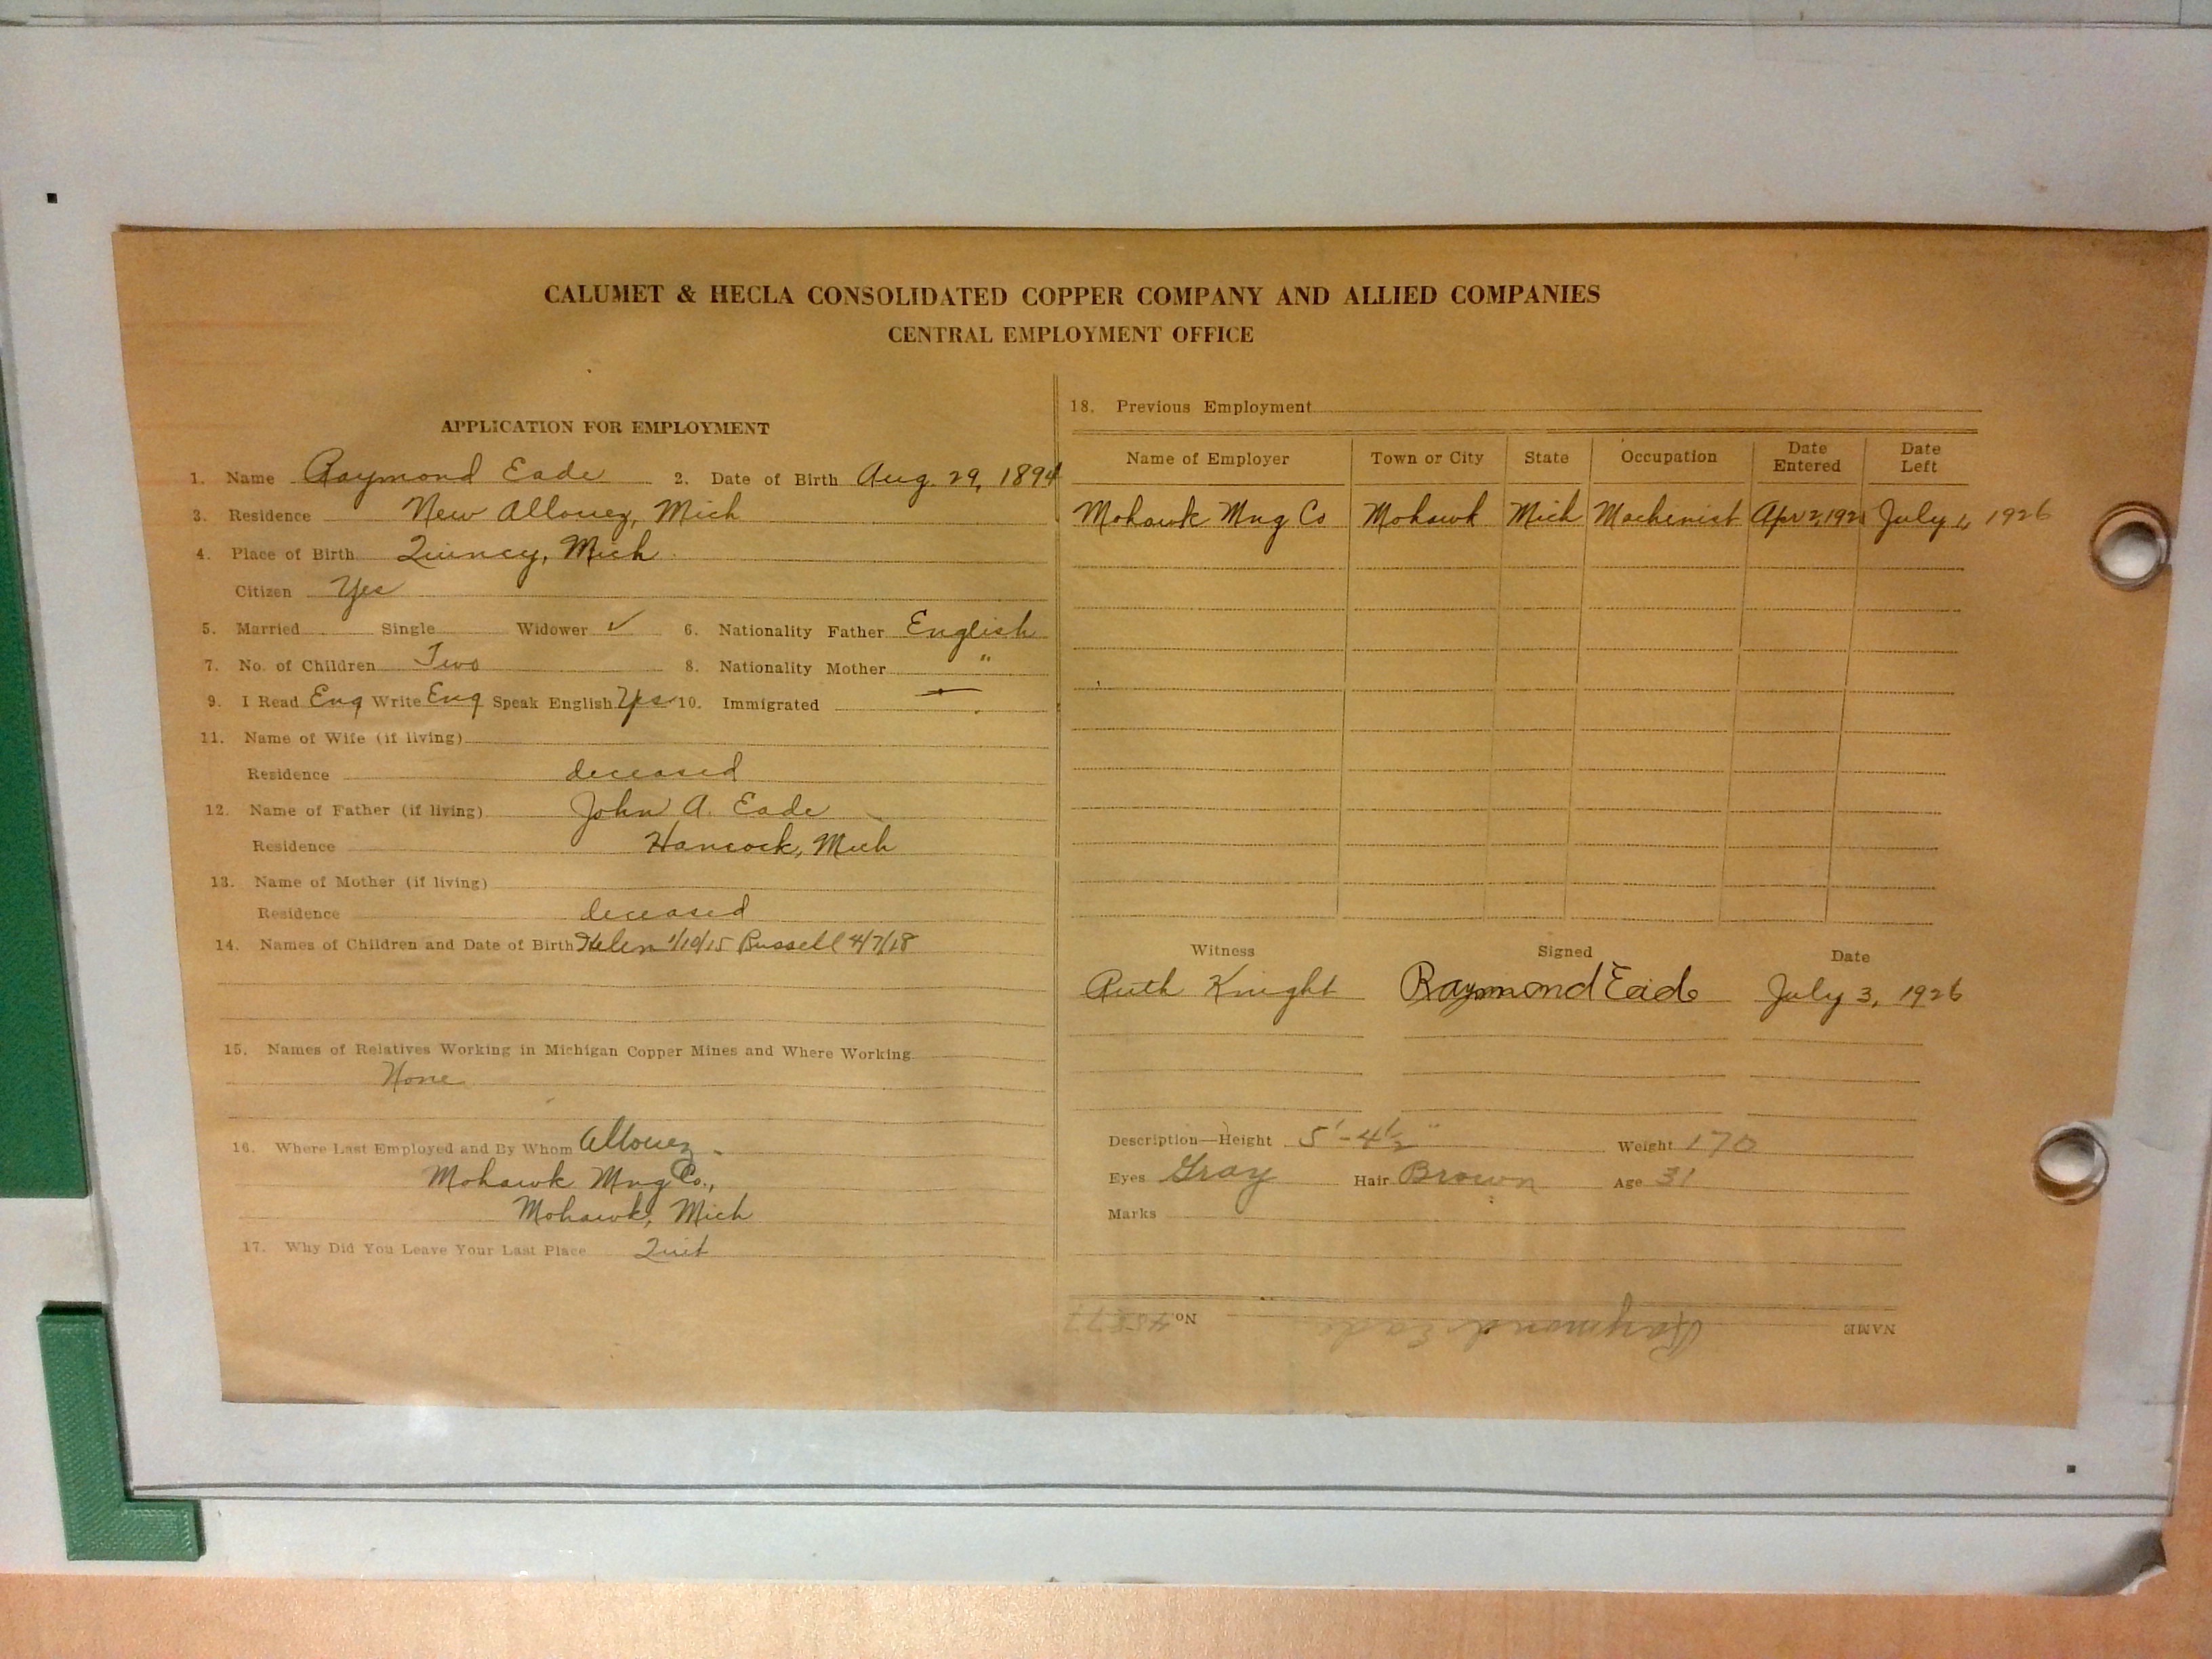 CALUMET & HECLA CONSOLIDATED COPPER COMPANY AND ALLIED COMPANIES
CENTRAL EMPLOYMENT OFFICE
APPLICATION FOR EMPLOYMENT
1. Name Raymond Eade 2. Date of Birth Aug. 29, 1894
3. Residence New Allouez, Mich
4. Place of Birth Quincy, Mich
Citizen Yes
5. Married Single Widower ✓ 6. Nationality Father English
7. No. of Children Two 8. Nationality Mother "
9. I Read Eng Write Eng Speak English Yes 10. Immigrated —
11. Name of Wife (if living)
Residence deceased
12. Name of Father (if living) John A. Eade
Residence Hancock, Mich
13. Name of Mother (if living)
Residence deceased
14. Names of Children and Date of Birth Helen 1/10/15 Russell 4/7/18
15. Names of Relatives Working in Michigan Copper Mines and Where Working
None
16. Where Last Employed and By Whom Allouez
Mohawk Mng Co.,
Mohawk, Mich
17. Why Did You Leave Your Last Place Quit
18. Previous Employment
Name of Employer Town or City State Occupation Date Entered Date Left
Mohawk Mng Co Mohawk Mich Machenist Apr 2, July 1, 1926
Witness Signed Date
Ruth Knight Raymond Eade July 3, 1926
Description—Height 5'-4½" Weight 170
Eyes Gray Hair Brown Age 31
Marks
NAME Raymond Eade No.